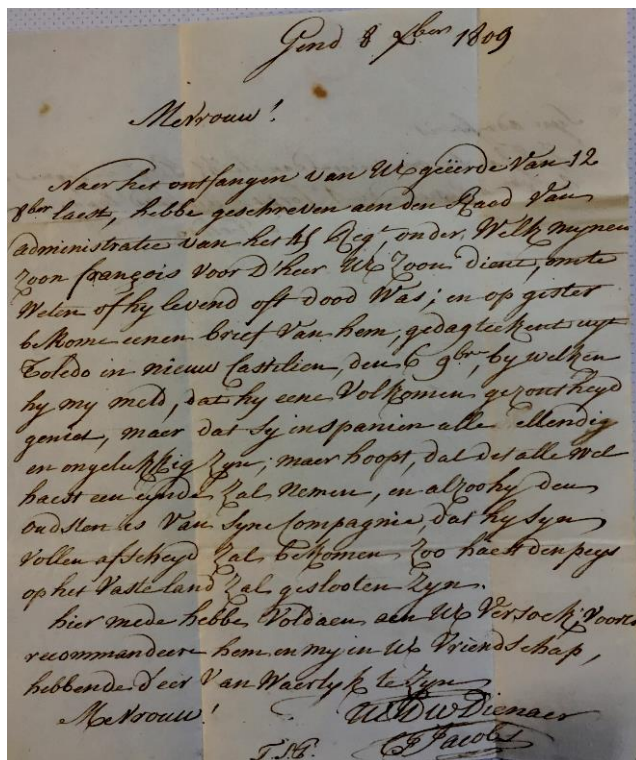 Gend 8 Xber 1809
Mevrouw!
Naer het ontfangen van UE geëerde van 12
8ber laest, hebbe geschreven aen den Raed van
administratie van het 45 Regt, onder welk mynen
zoon françois voor d'heer UE zoon dient, om te
weten of hy levend oft dood was; en op gister
bekome eenen brief van hem, gedagteekent uyt
Toledo in nieuw Castilien, den 6 9ber, by welken
hy my meld, dat hy eene volkomen gezontheyd
geniet, maer dat sy in spanien alle ellendig
en ongelukkig zyn; maer hoopt, dat dit alle wel
haest een eynde zal nemen, en alzoo hy den
oudsten is van syne Compagnie, dat hy syn
vollen afscheyd zal bekomen zoo haest den peys
op het vaste land zal geslooten zyn.
hier mede hebbe voldaen aen UE versoek; voorts
recommandeere hem en my in UE vriendschap,
hebbende d'eer van waerlyk te zyn
Mevrouw! UE Dw Dienaer
Jacobs